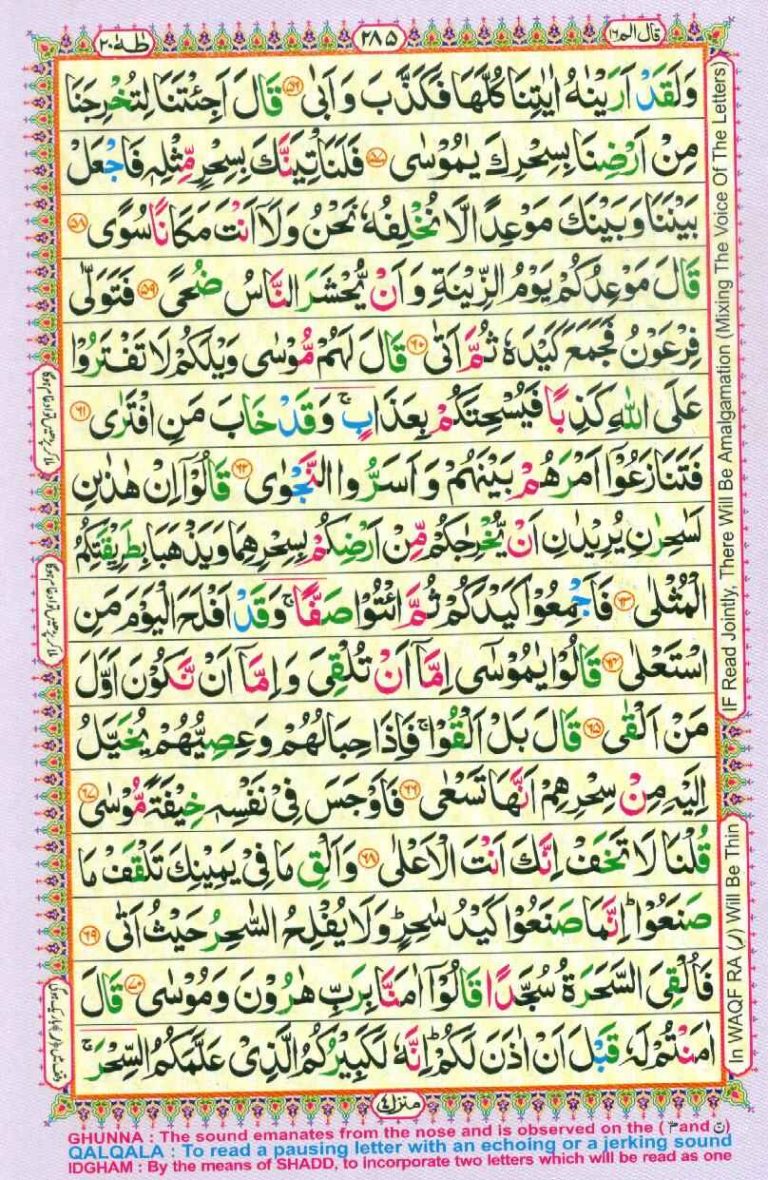 قال الم ١٦
٢٨٥
طٰهٰ ٢٠
وَلَقَدْ اَرَيْنٰهُ اٰيٰتِنَا كُلَّهَا فَكَذَّبَ وَ اَبٰى ۝٥٦ قَالَ اَجِئْتَنَا لِتُخْرِجَنَا
مِنْ اَرْضِنَا بِسِحْرِكَ يٰمُوْسٰى ۝٥٧ فَلَنَاْتِيَنَّكَ بِسِحْرٍ مِّثْلِهٖ فَاجْعَلْ
بَيْنَنَا وَ بَيْنَكَ مَوْعِدًا لَّا نُخْلِفُهٗ نَحْنُ وَلَاۤ اَنْتَ مَكَانًا سُوًى ۝٥٨
قَالَ مَوْعِدُكُمْ يَوْمُ الزِّيْنَةِ وَ اَنْ يُّحْشَرَ النَّاسُ ضُحًى ۝٥٩ فَتَوَلّٰى
فِرْعَوْنُ فَجَمَعَ كَيْدَهٗ ثُمَّ اَتٰى ۝٦٠ قَالَ لَهُمْ مُّوْسٰى وَيْلَكُمْ لَا تَفْتَرُوْا
عَلَى اللّٰهِ كَذِبًا فَيُسْحِتَكُمْ بِعَذَابٍ ۚ وَقَدْ خَابَ مَنِ افْتَرٰى ۝٦١
فَتَنَازَعُوْۤا اَمْرَهُمْ بَيْنَهُمْ وَ اَسَرُّوا النَّجْوٰى ۝٦٢ قَالُوْۤا اِنْ هٰذٰىنِ
لَسٰحِرٰنِ يُرِيْدٰنِ اَنْ يُّخْرِجٰكُمْ مِّنْ اَرْضِكُمْ بِسِحْرِهِمَا وَيَذْهَبَا بِطَرِيْقَتِكُمُ
الْمُثْلٰى ۝٦٣ فَاَجْمِعُوْا كَيْدَكُمْ ثُمَّ ائْتُوْا صَفًّا ۚ وَقَدْ اَفْلَحَ الْيَوْمَ مَنِ
اسْتَعْلٰى ۝٦٤ قَالُوْا يٰمُوْسٰۤى اِمَّاۤ اَنْ تُلْقِيَ وَ اِمَّاۤ اَنْ نَّكُوْنَ اَوَّلَ
مَنْ اَلْقٰى ۝٦٥ قَالَ بَلْ اَلْقُوْا ۚ فَاِذَا حِبَالُهُمْ وَعِصِيُّهُمْ يُخَيَّلُ
اِلَيْهِ مِنْ سِحْرِهِمْ اَنَّهَا تَسْعٰى ۝٦٦ فَاَوْجَسَ فِيْ نَفْسِهٖ خِيْفَةً مُّوْسٰى ۝٦٧
قُلْنَا لَا تَخَفْ اِنَّكَ اَنْتَ الْاَعْلٰى ۝٦٨ وَاَلْقِ مَا فِيْ يَمِيْنِكَ تَلْقَفْ مَا
صَنَعُوْا ؕ اِنَّمَا صَنَعُوْا كَيْدُ سٰحِرٍ ؕ وَلَا يُفْلِحُ السَّاحِرُ حَيْثُ اَتٰى ۝٦٩
فَاُلْقِيَ السَّحَرَةُ سُجَّدًا قَالُوْۤا اٰمَنَّا بِرَبِّ هٰرُوْنَ وَمُوْسٰى ۝٧٠ قَالَ
اٰمَنْتُمْ لَهٗ قَبْلَ اَنْ اٰذَنَ لَكُمْ ؕ اِنَّهٗ لَكَبِيْرُكُمُ الَّذِيْ عَلَّمَكُمُ السِّحْرَ ۚ
منزل ٤
IF Read Jointly, There Will Be Amalgamation (Mixing The Voice Of The Letters)
In WAQF RA (ر) Will Be Thin
GHUNNA : The sound emanates from the nose and is observed on the ( مّ and نّ )
QALQALA : To read a pausing letter with an echoing or a jerking sound
IDGHAM : By the means of SHADD, to incorporate two letters which will be read as one